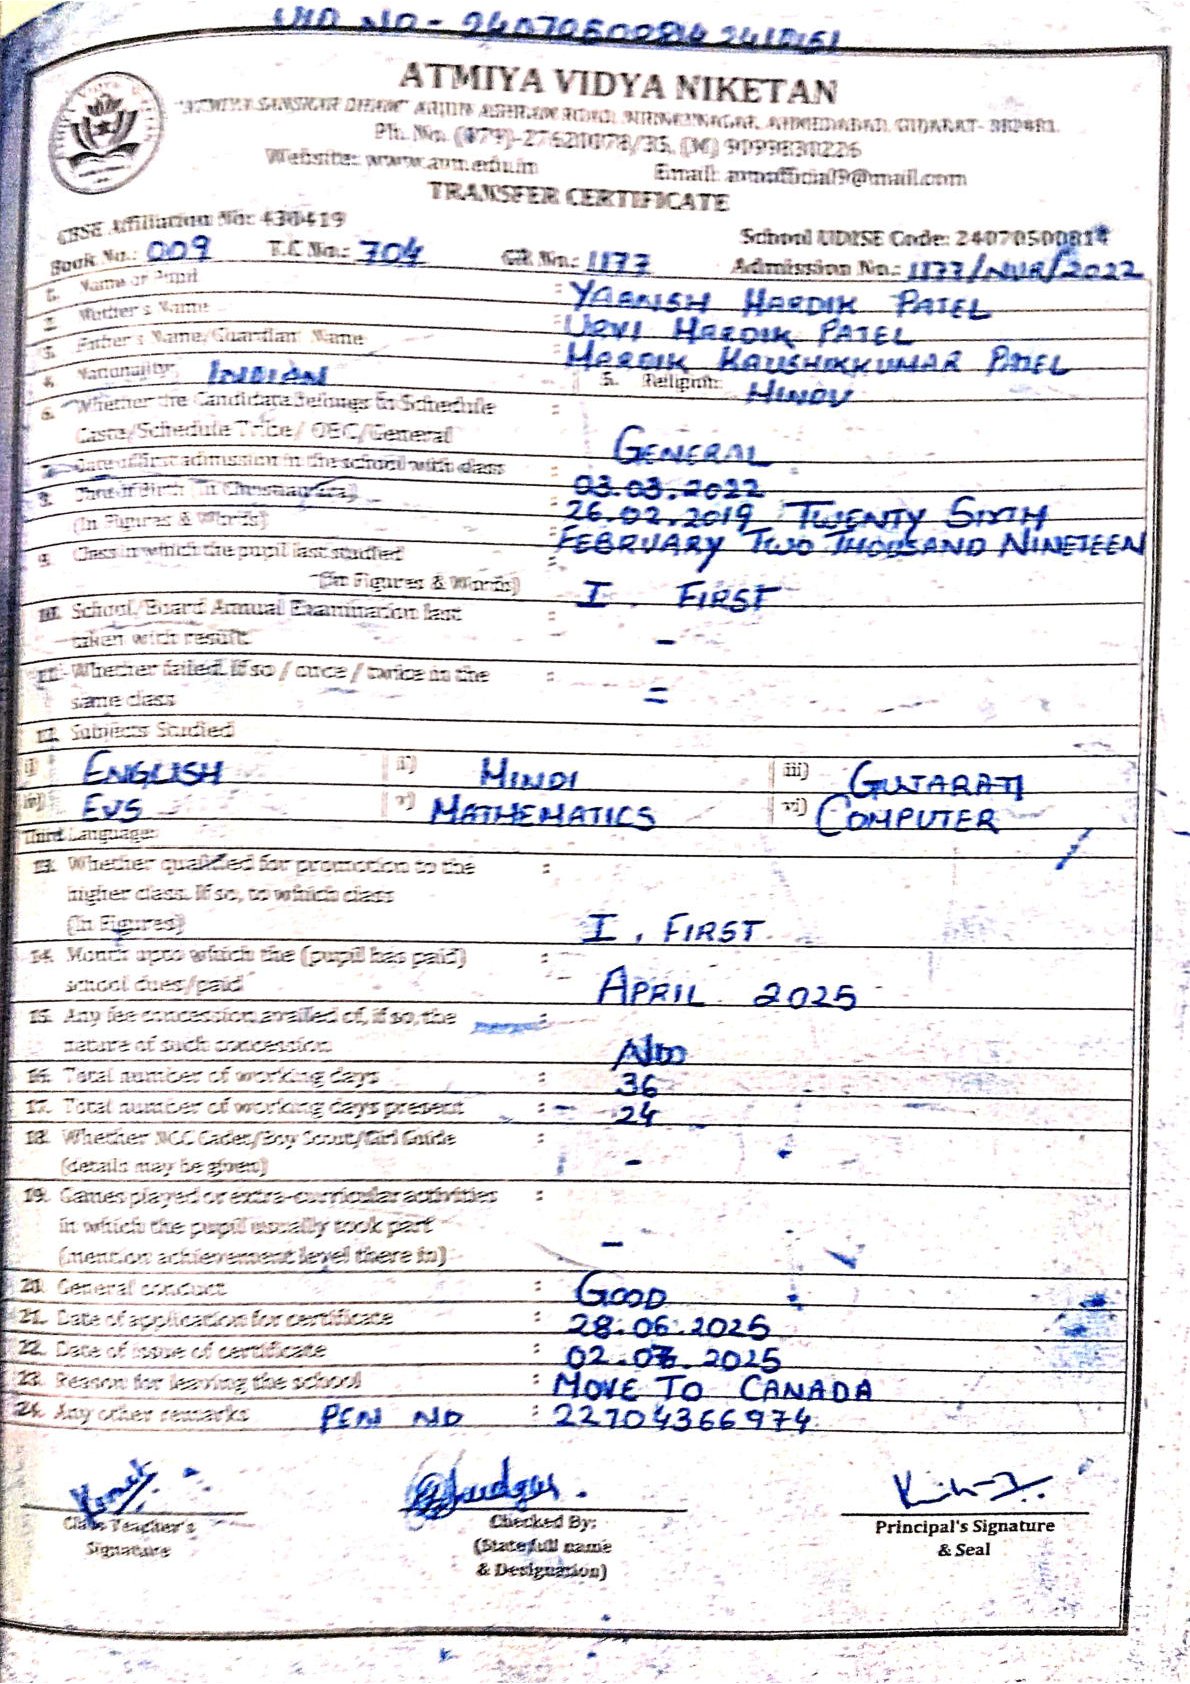 UID NO - 24070500814 2410151
ATMIYA VIDYA NIKETAN
"ATMIYA SANSKAR DHAM" ASHRAM ROAD, AHMEDABAD, GUJARAT- 382481.
Ph. No. (079)-27620078/36, (M) 9099830226
Website: www.avn.edu.in Email: avnofficial9@mail.com
TRANSFER CERTIFICATE
CBSE Affiliation No: 430419 School UDISE Code: 24070500814
Book No.: 009 T.C No.: 704 GR No.: 1177 Admission No.: 1177/NUR/2022
1. Name of Pupil : YAANISH HARDIK PATEL
2. Mother's Name : URVI HARDIK PATEL
3. Father's Name/Guardian Name : HARDIK KAUSHIKKUMAR PATEL
4. Nationality: INDIAN 5. Religion: HINDU
6. Whether the Candidate Belongs to Schedule :
Caste/Schedule Tribe/ OBC/General GENERAL
7. Date of first admission in the school with class : 03.03.2022
8. Date of Birth (In Christian Era) : 26.02.2019 TWENTY SIXTH
(In Figures & Words) FEBRUARY TWO THOUSAND NINETEEN
9. Class in which the pupil last studied :
(In Figures & Words) I . FIRST
10. School/Board Annual Examination last :
taken with result -
11. Whether failed, if so / once / twice in the :
same class =
12. Subjects Studied
i) ENGLISH ii) HINDI iii) GUJARATI
iv) EVS v) MATHEMATICS vi) COMPUTER
Third Language:
13. Whether qualified for promotion to the :
higher class. If so, to which class
(In Figures) I , FIRST
14. Month upto which the (pupil has paid) :
school dues/paid APRIL 2025
15. Any fee concession availed of, if so, the :
nature of such concession
16. Total number of working days : 36
17. Total number of working days present : 24
18. Whether NCC Cadet/Boy Scout/Girl Guide :
(details may be given) -
19. Games played or extra-curricular activities :
in which the pupil usually took part
(mention achievement level there in) -
20. General conduct : GOOD
21. Date of application for certificate : 28.06.2025
22. Date of issue of certificate : 02.07.2025
23. Reason for leaving the school : MOVE TO CANADA
24. Any other remarks PEN NO : 22704366974
Class Teacher's Checked By: Principal's Signature
Signature (State full name & Seal
& Designation)